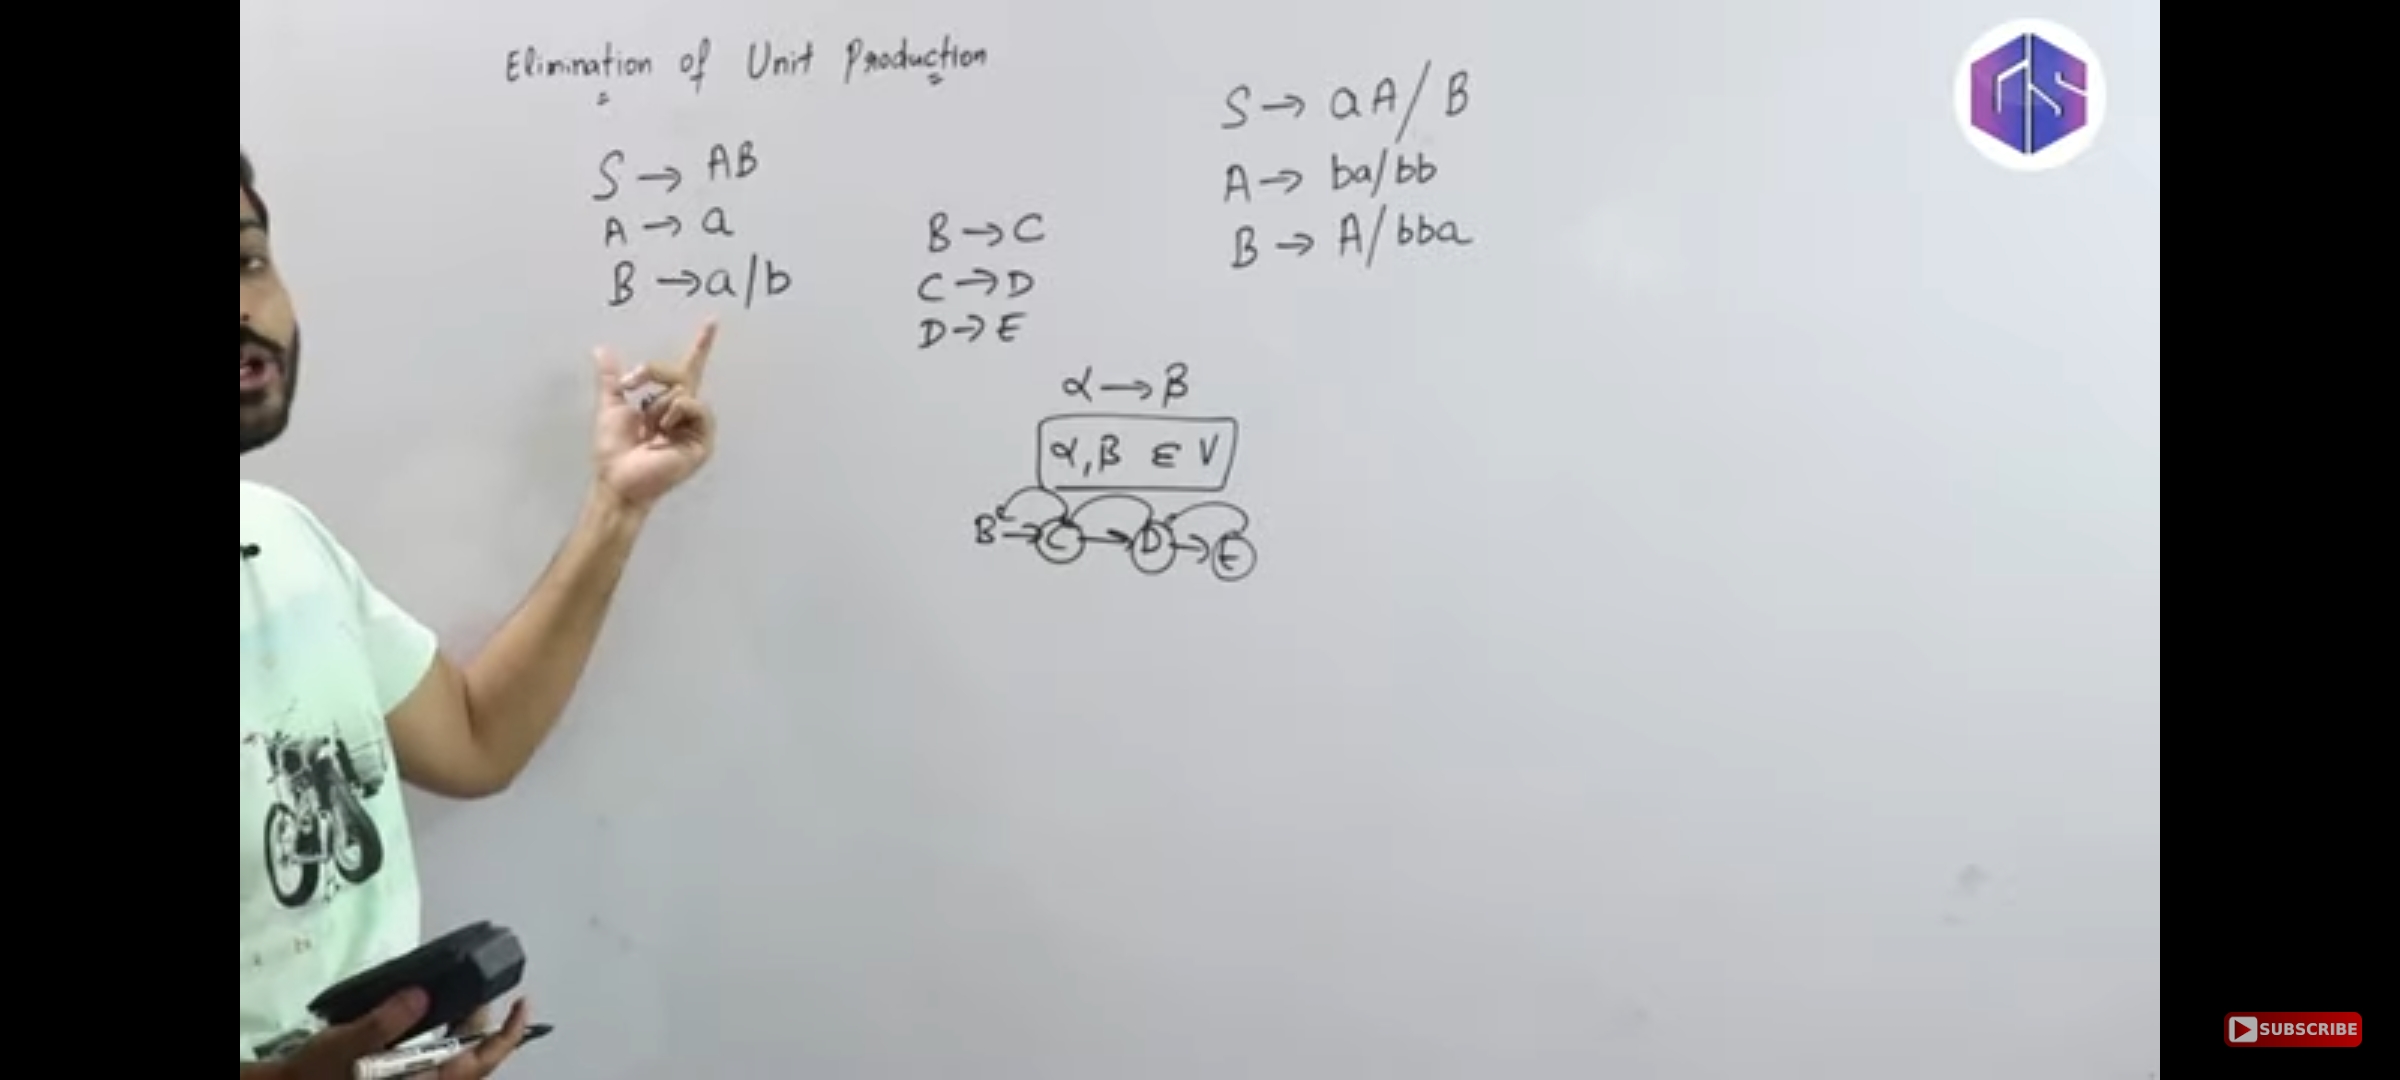 Elimination of Unit Production
S → AB
A → a
B → a/b
B → C
C → D
D → E
S → aA/B
A → ba/bb
B → A/bba
α → β
α, β ∈ V
B → C → D → E
GS
SUBSCRIBE